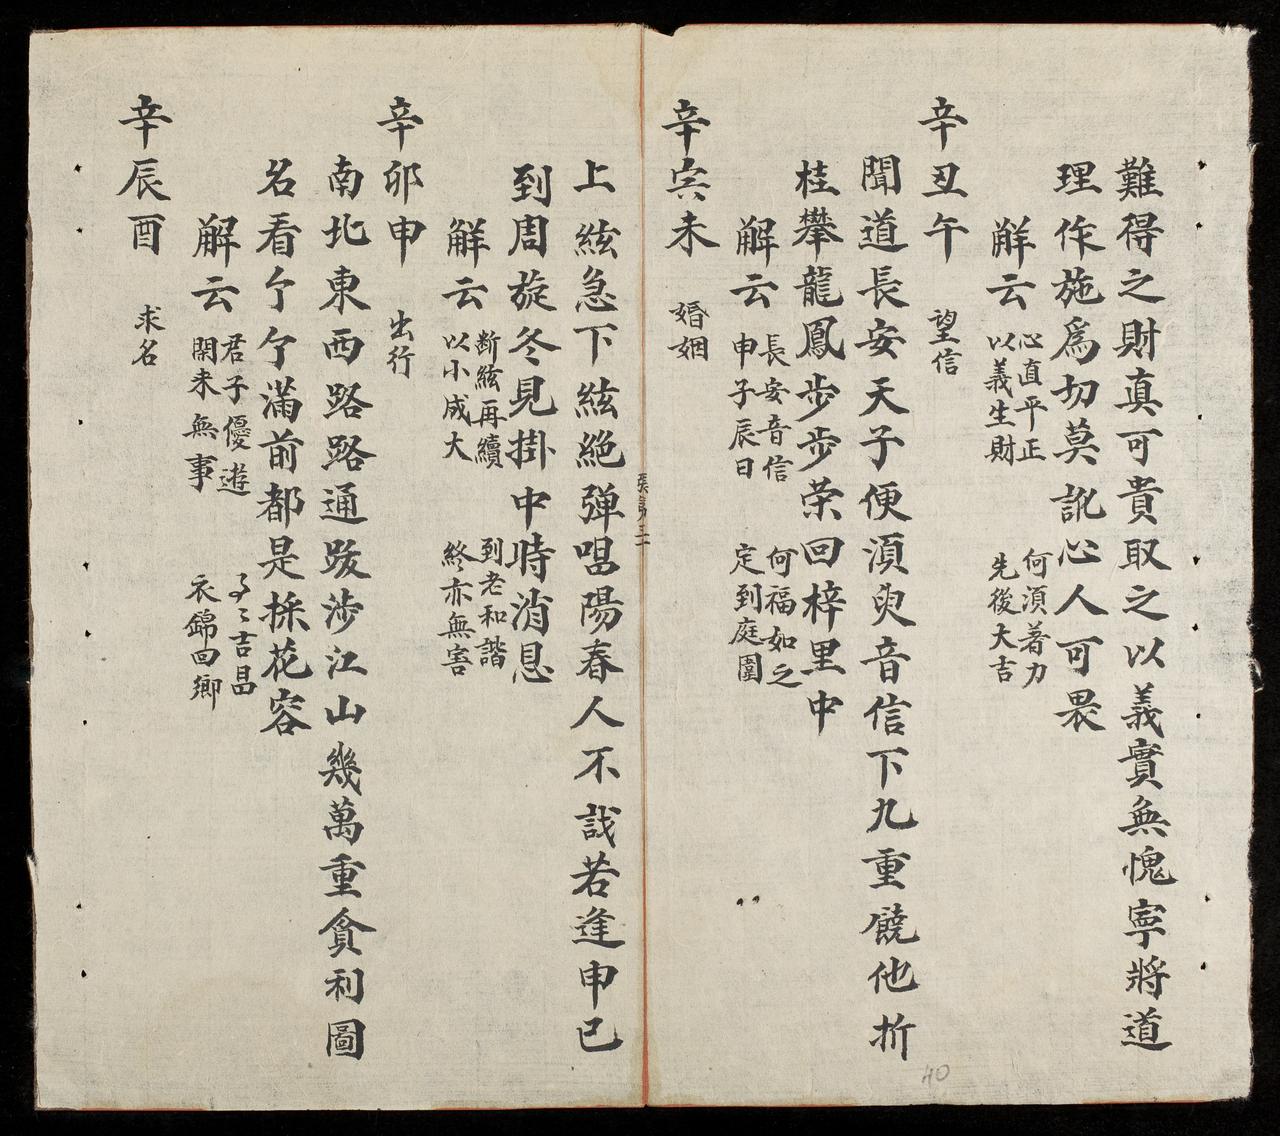 難得之財真可貴取之以義實無愧寧將道
理作施爲切莫訛心人可畏
解云
心直平正
以義生財
何須着力
先後大吉
辛丑午
望信
聞道長安天子便須臾音信下九重饒他折
桂攀龍鳳步步荣回梓里中
解云
長安音信
申子辰日
何福如之
定到庭圍
辛寅未
婚姻
上絃急下絃絕弹唱陽春人不識若逢申巳
到周旋冬見掛中時消息
解云
断絃再續
以小成大
到老和諧
終亦無害
辛卯申
出行
南北東西路路通跋涉江山幾萬重貪利圖
名看亇亇滿前都是採花容
解云
君子優遊
閑来無事
事々吉昌
衣錦回鄉
辛辰酉
求名
40